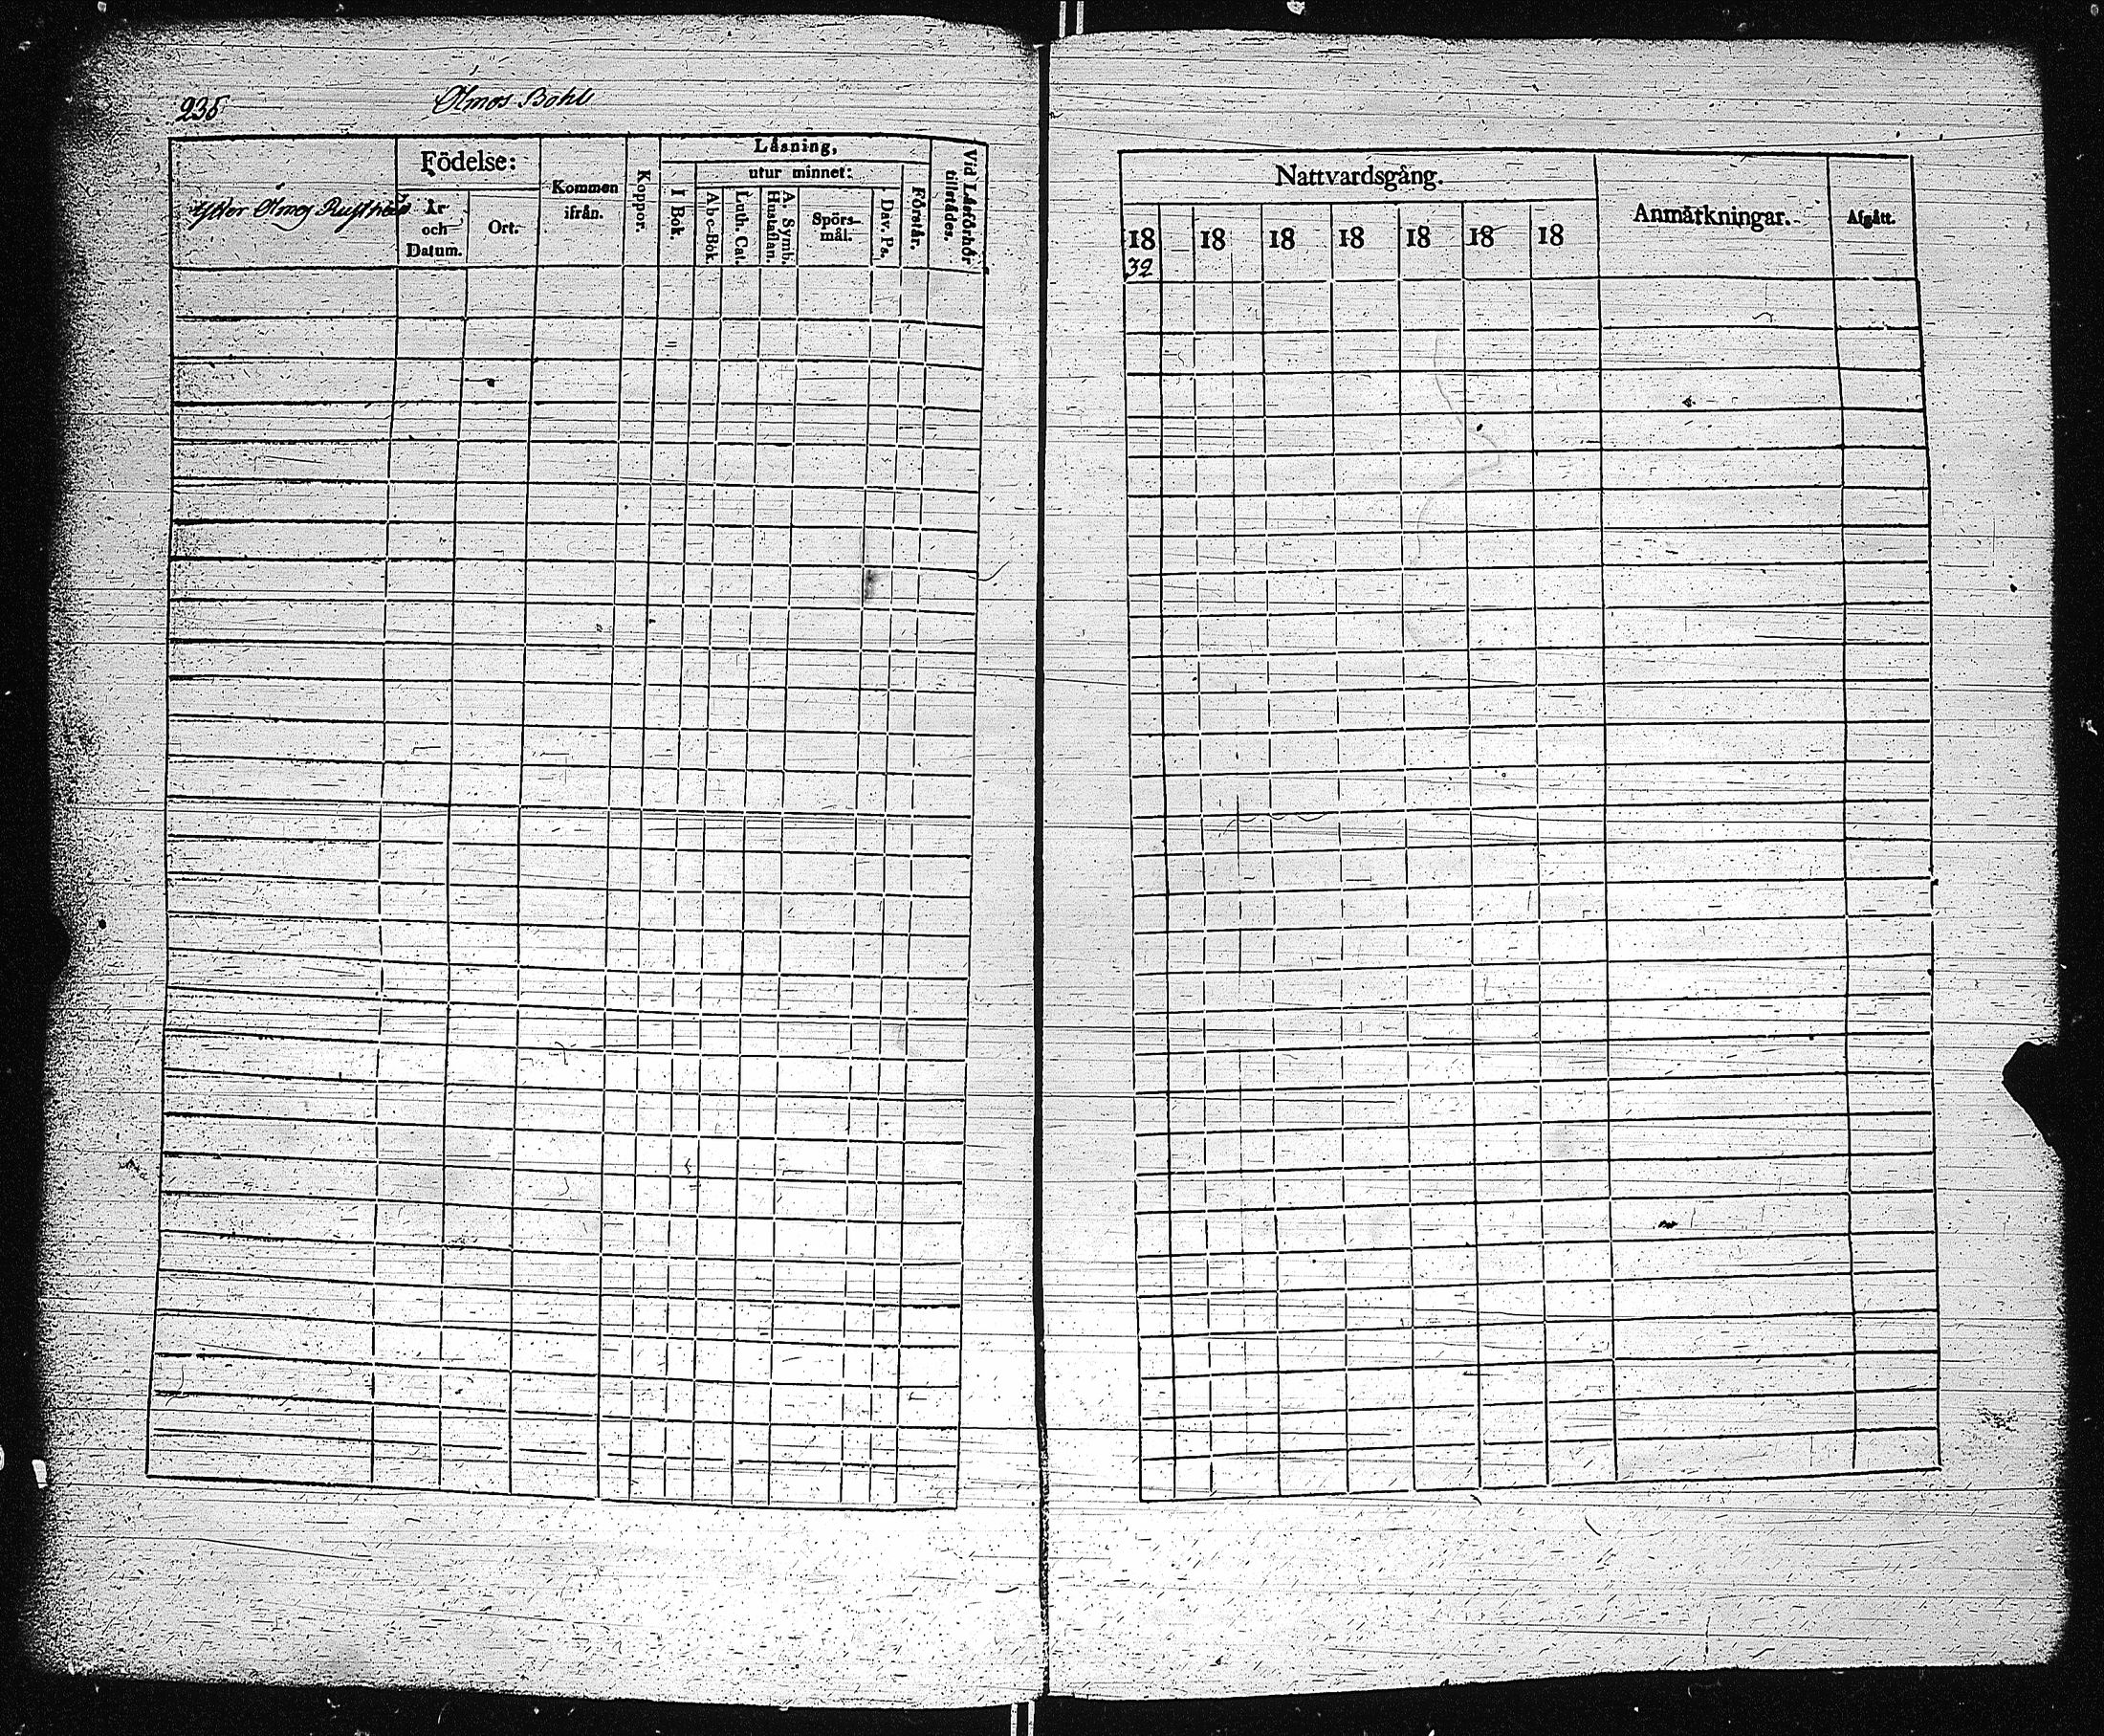 235
Ölmos Bohl
Ytter Ölmos Rusthåll
Födelse:
År och Datum.
Ort.
Kommen ifrån.
Koppor.
Läsning,
I Bok.
utur minnet:
Abc-Bok.
Luth. Cat.
A. Symb. Hustaflan.
Spörs-mål.
Dav. Ps.
Förstår.
Vid Läsförhör tillstädes.
Nattvardsgång.
18 18 18 18 18 18 18
32
Anmärkningar.
Afgått.